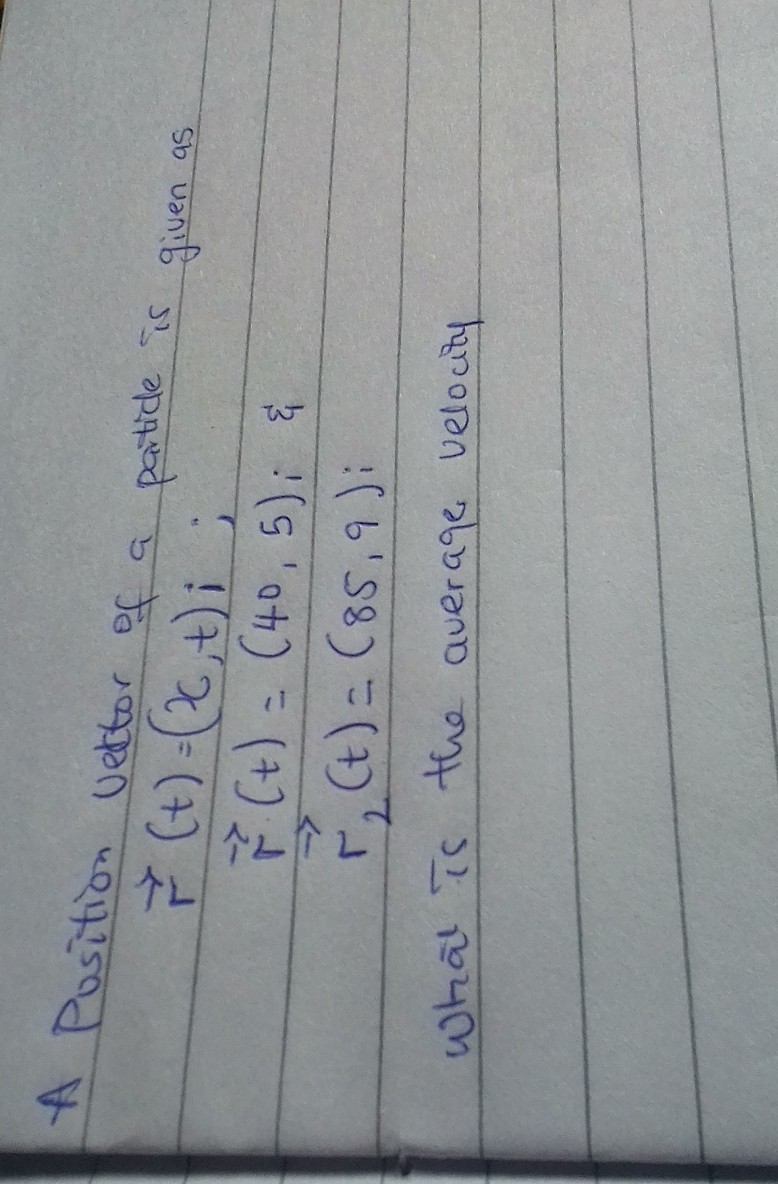 A Position vector of a particle is given as
r⃗ (t) = (x, t) i ;
r⃗ (t) = (40, 5) i &
r⃗₂ (t) = (85, 9) i
What is the average velocity